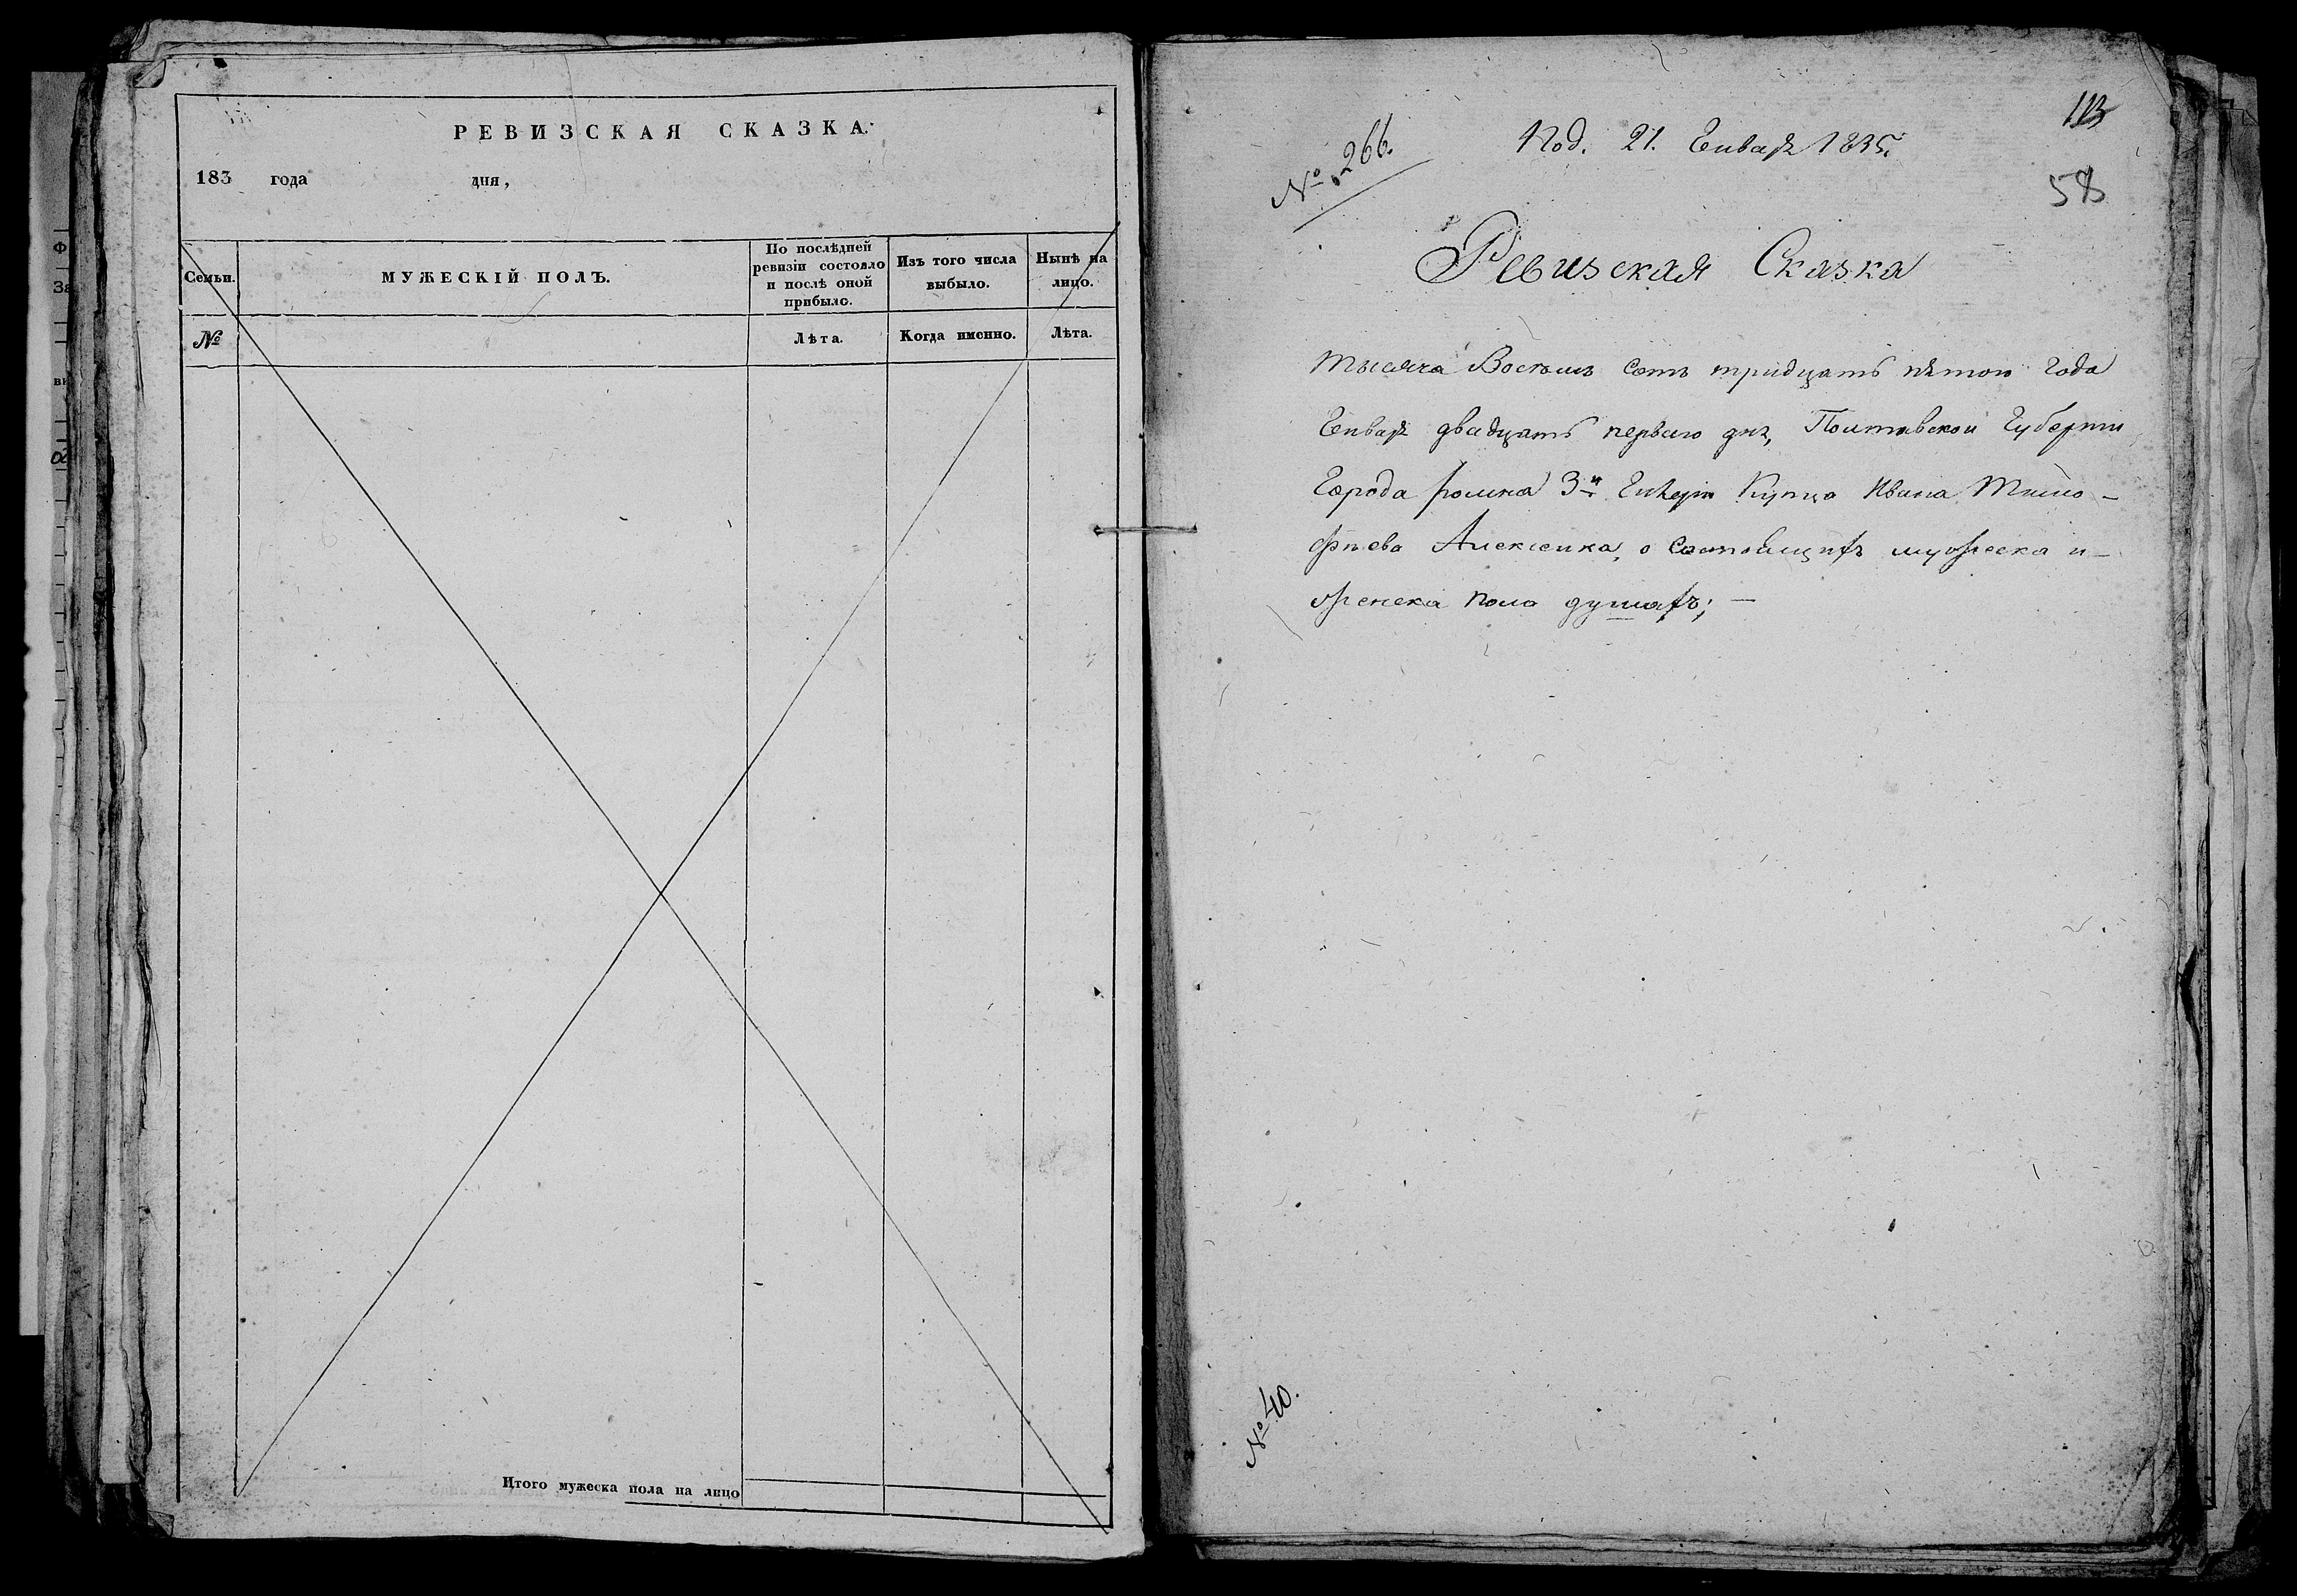 РЕВИЗСКАЯ СКАЗКА.
183 года дня,
Семьи.
МУЖЕСКІЙ ПОЛЪ.
По послѣдней
ревизіи состояло
и послѣ оной
прибыло.
Изъ того числа
выбыло.
Нынѣ на
лицо.
№
Лѣта.
Когда именно.
Лѣта.
Итого мужеска пола на лицо
113
№ 266.
Под. 21. Генваря 1835.
58
Ревизская Сказка
тысяча Восемь сотъ тридцать пятого года
Генваря двадцать первого дня, Полтавской Губерніи
Города Ромна 3й Гильдіи Купца Ивана Тимо-
фѣева Алексенка, о состоящихъ мужеска и-
женска пола душахъ; —
№ 40.